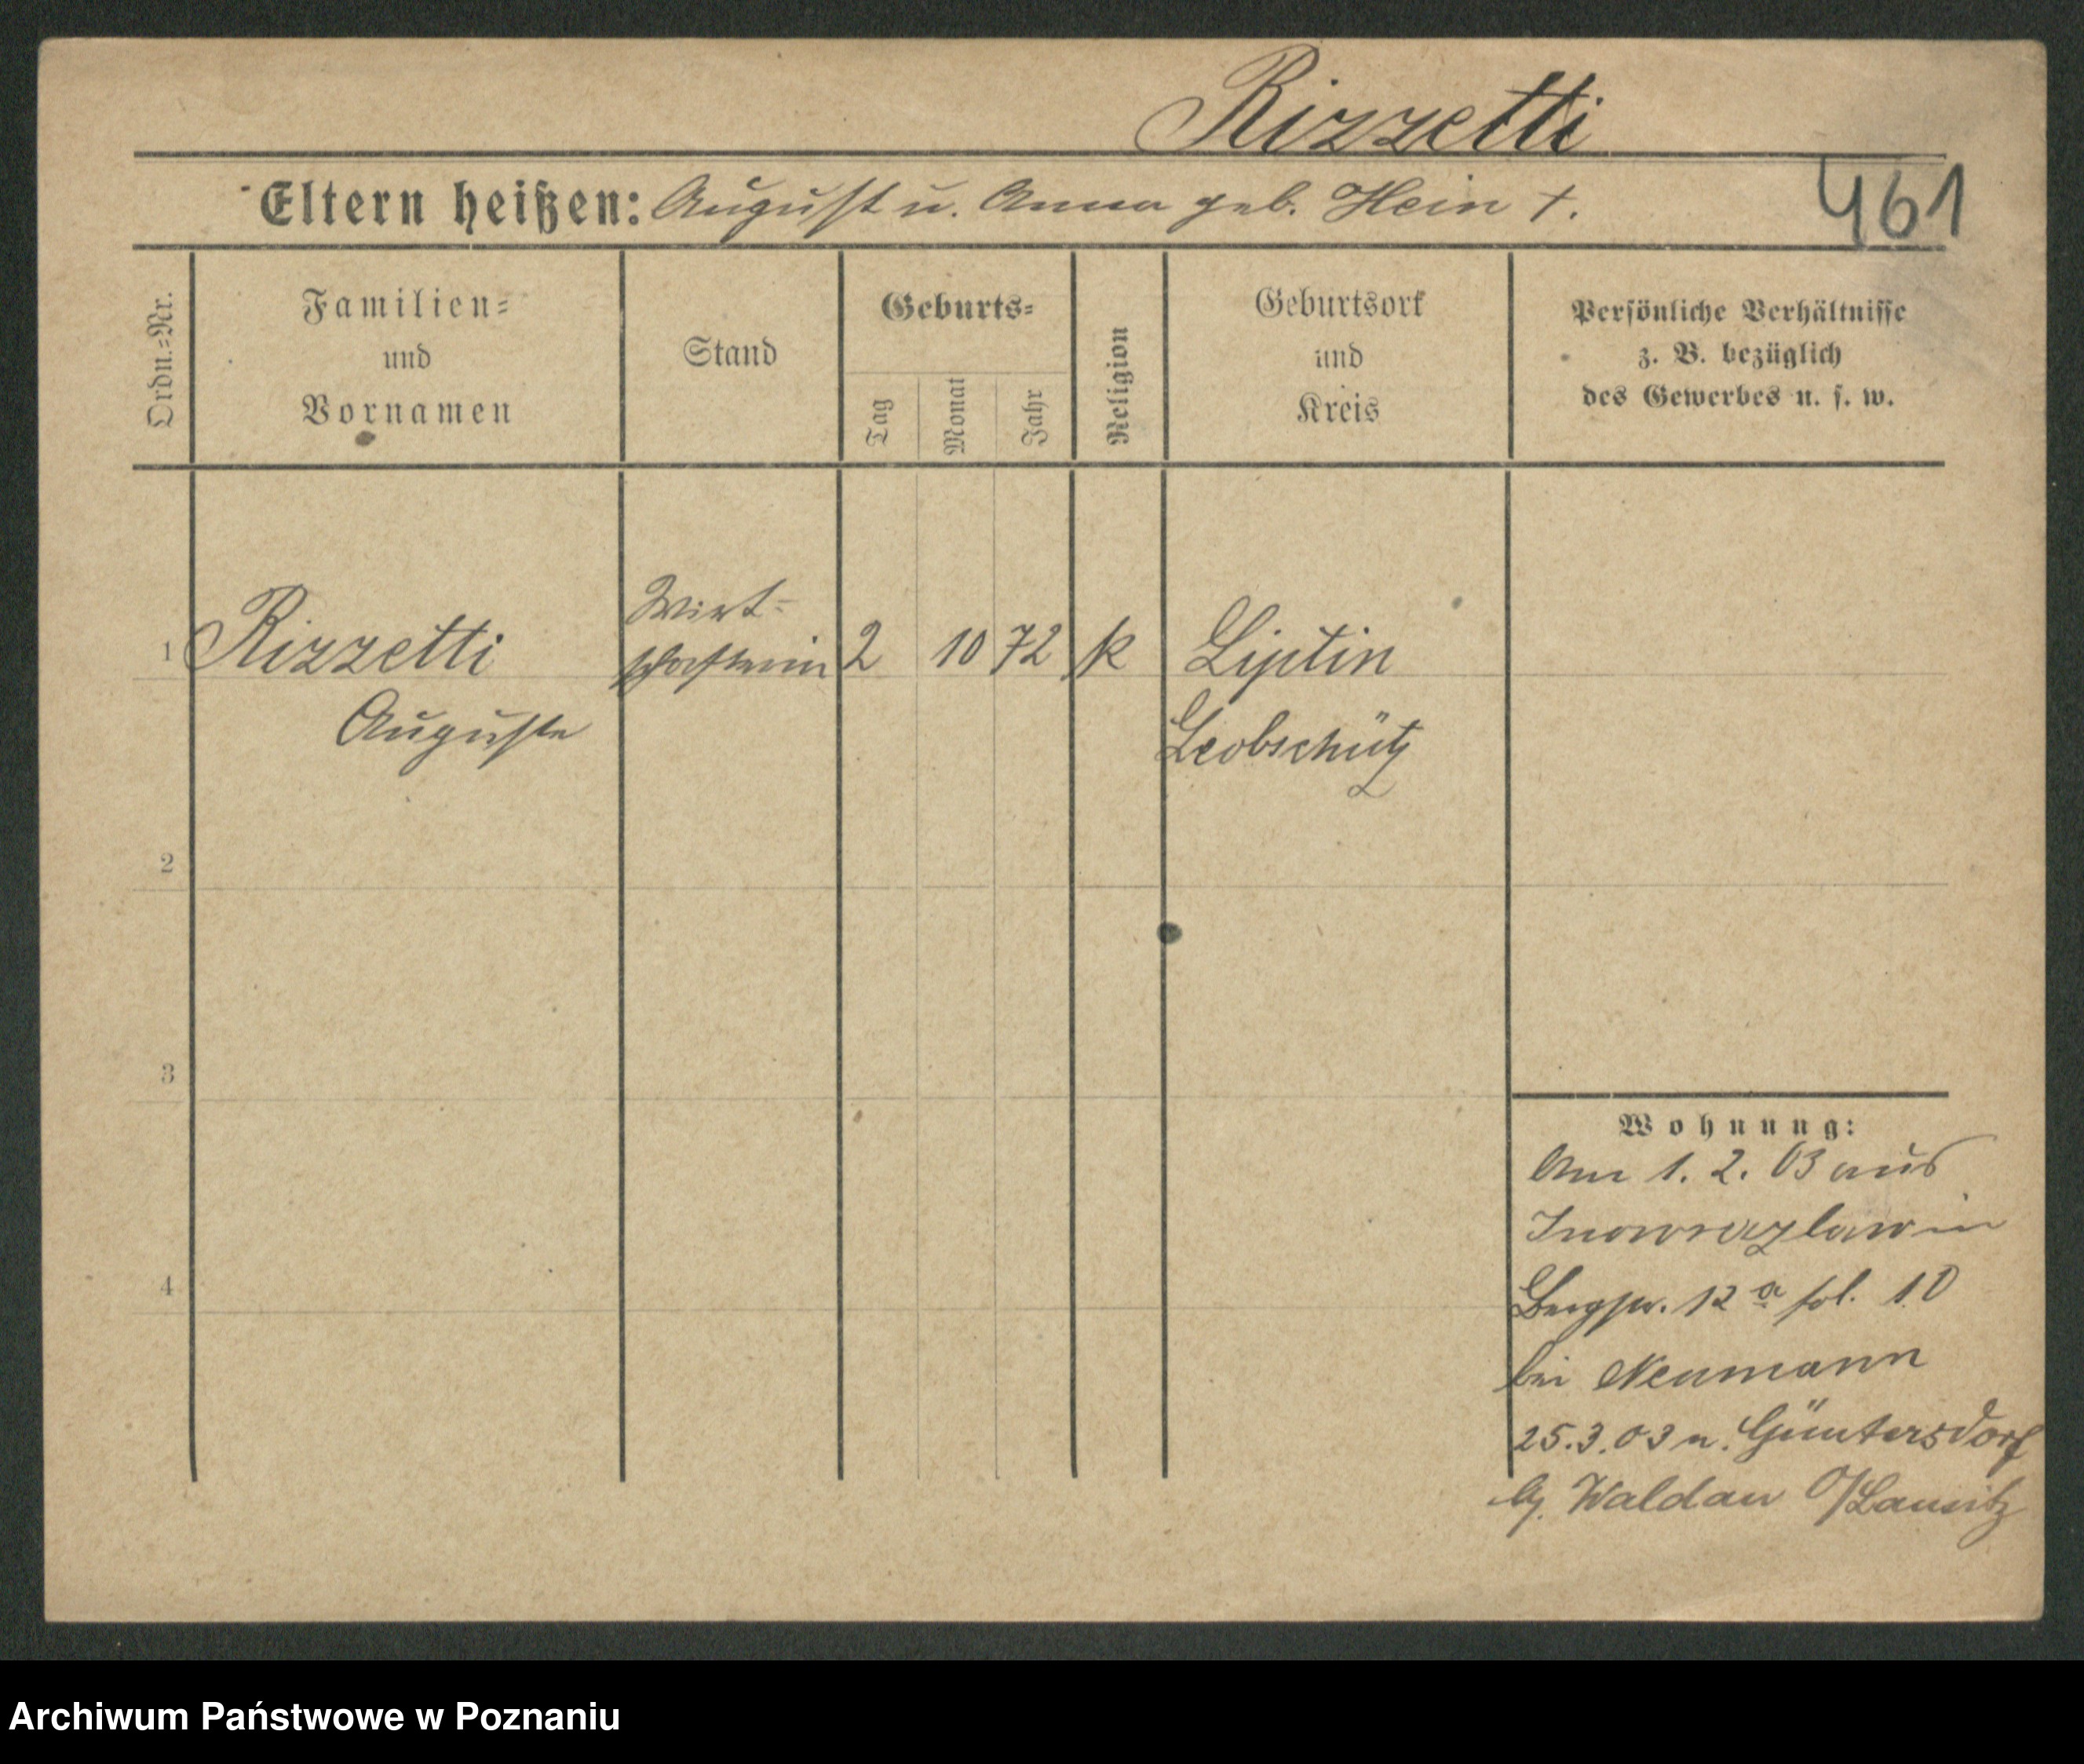 Rizzetti
Eltern heißen: August u. Anna geb. Hein †.
461
Ordn.=Nr.
Familien=
und
Vornamen
Stand
Geburts=
Tag
Monat
Jahr
Religion
Geburtsort
und
Kreis
Persönliche Verhältnisse
z. B. bezüglich
des Gewerbes u. s. w.
Wirt=
1 Rizzetti schafterin 2 10 72 k Liptin
Auguste Leobschütz
2
3
4
Wohnung:
Am 1. 2. 03 aus
Inowrazlaw in
Bergstr. 12 a 10
bei Neumann
25.3.03 n. Güntersdorf
Waldau O/Lausitz
Archiwum Państwowe w Poznaniu